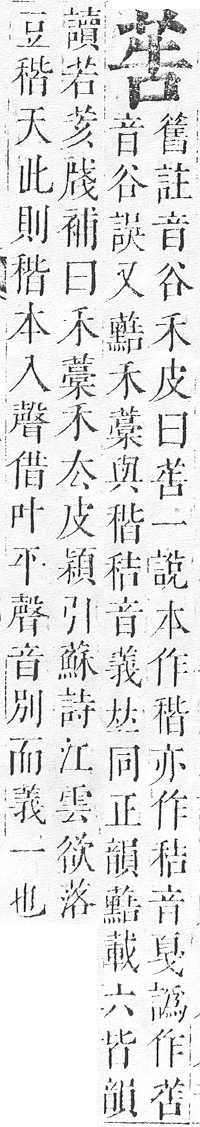 舊註音谷禾皮曰一說本作稭亦作秸音戛譌作
音谷誤又禾藁與稭秸音義𠀤同正韻載六皆韻
讀若荄牋補曰禾藁禾厺皮穎引蘇詩江雲欲落
豆稭天此則稭本入聲借叶平聲音別而義一也